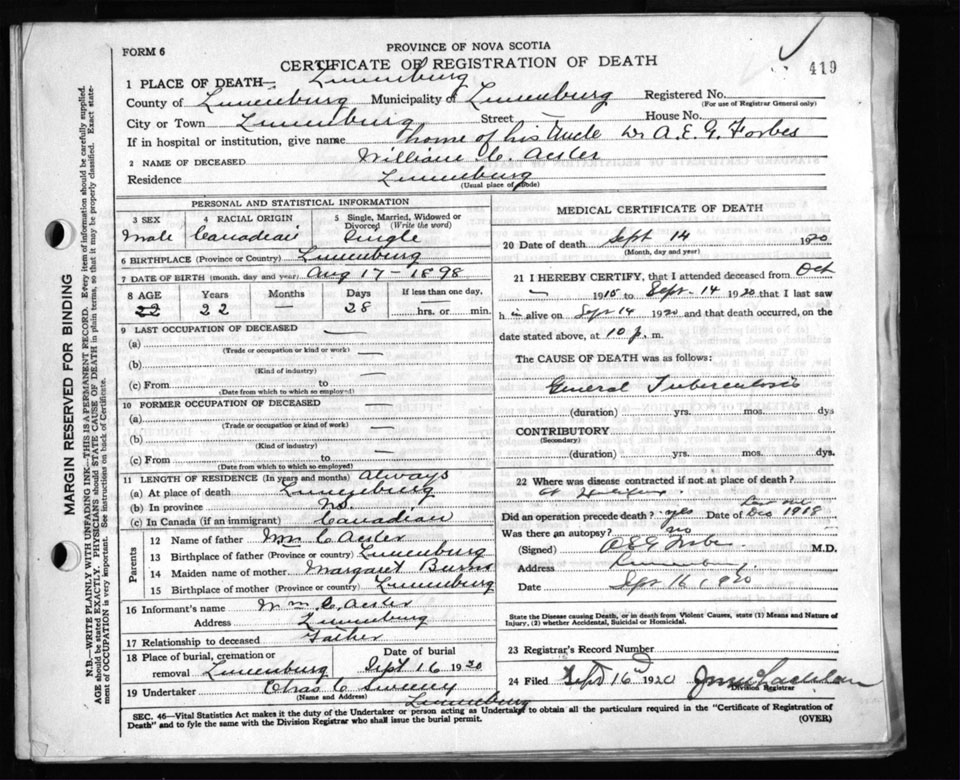 FORM 6
PROVINCE OF NOVA SCOTIA
CERTIFICATE OF REGISTRATION OF DEATH
419
1 PLACE OF DEATH— Lunenburg
County of Lunenburg Municipality of Lunenburg Registered No.
(For use of Registrar General only)
City or Town Lunenburg Street House No.
If in hospital or institution, give name home of his Uncle Dr A.E.G. Forbes
2 NAME OF DECEASED William C. Acker
Residence Lunenburg
(Usual place of abode)
PERSONAL AND STATISTICAL INFORMATION
3 SEX 4 RACIAL ORIGIN 5 Single, Married, Widowed or Divorced (Write the word)
Male Canadian Single
6 BIRTHPLACE (Province or Country) Lunenburg
7 DATE OF BIRTH (month, day and year) Aug 17 - 1898
8 AGE Years Months Days If less than one day,
22 22 — 28 hrs. or min.
9 LAST OCCUPATION OF DECEASED —
(a) —
(Trade or occupation or kind or work)
(b) —
(Kind of industry)
(c) From to —
(Date from which to which so employed)
10 FORMER OCCUPATION OF DECEASED —
(a) —
(Trade or occupation or kind of work)
(b) —
(Kind of industry)
(c) From to —
(Date from which to which so employed)
11 LENGTH OF RESIDENCE (In years and months) Always
(a) At place of death Lunenburg
(b) In province NS.
(c) In Canada (if an immigrant) Canadian
Parents
12 Name of father Wm C Acker
13 Birthplace of father (Province or country) Lunenburg
14 Maiden name of mother Margaret Burns
15 Birthplace of mother (Province or country) Lunenburg
16 Informant's name Wm C Acker
Address Lunenburg
17 Relationship to deceased Father
18 Place of burial, cremation or removal Lunenburg Date of burial Sept 16 1920
19 Undertaker Chas C Sweeny
(Name and Address) Lunenburg
MEDICAL CERTIFICATE OF DEATH
20 Date of death Sept 14 1920
(Month, day and year)
21 I HEREBY CERTIFY, that I attended deceased from Oct
— 1915 to Sept - 14 1920 that I last saw
h im alive on Sept 14 1920 and that death occurred, on the
date stated above, at 10 p. m.
The CAUSE OF DEATH was as follows:
General Tuberculosis
(duration) yrs. mos. dys
CONTRIBUTORY
(Secondary)
(duration) yrs. mos. dys.
22 Where was disease contracted if not at place of death?
At Halifax
Did an operation precede death? yes Date of Dec 1918
Was there an autopsy? no
(Signed) AEG Forbes M.D.
Address Lunenburg
Date Sept 16 1920
State the Disease causing Death, or in death from Violent Causes, state (1) Means and Nature of
Injury, (2) whether Accidental, Suicidal or Homicidal.
23 Registrar's Record Number
24 Filed Sept 16 1920
Division Registrar
SEC. 46—Vital Statistics Act makes it the duty of the Undertaker or person acting as Undertaker to obtain all the particulars required in the "Certificate of Registration of
Death" and to fyle the same with the Division Registrar who shall issue the burial permit. (OVER)
MARGIN RESERVED FOR BINDING
N.B.—WRITE PLAINLY WITH UNFADING INK—THIS IS A PERMANENT RECORD. Every item of information should be carefully supplied.
AGE should be stated EXACTLY. PHYSICIANS should STATE CAUSE OF DEATH in plain terms, so that it may be properly classified. Exact state-
ment of OCCUPATION is very important. See instructions on back of Certificate.